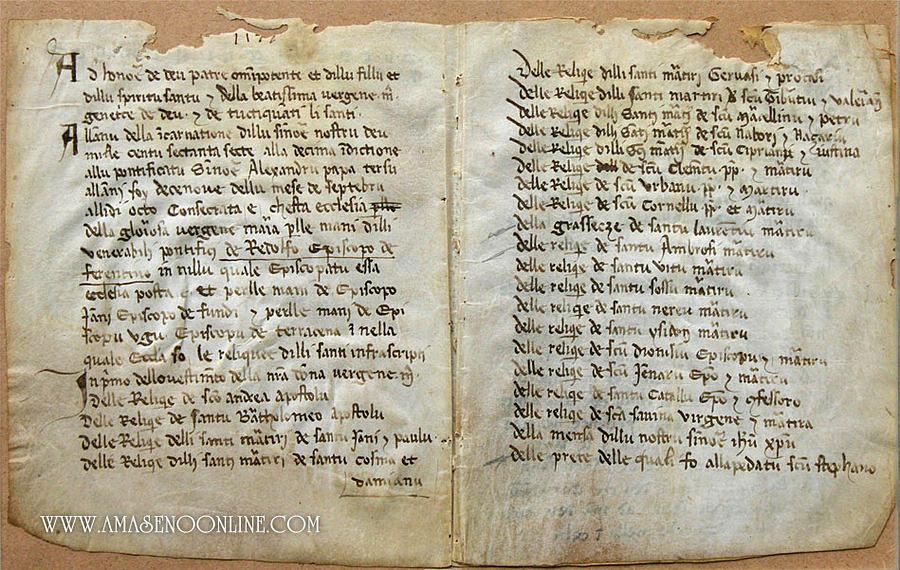 1177
Ad honoē de deu patre omīpotente et dillu filiu et
dillu spiritu santu ⁊ della beatissima vergene m̄.
genetce de deu. ⁊ de tucti quāti li santi.
Allānu della īcarnatione dillu sinōe nostru deu
mille centu sectanta septe alla decima īdictione
allu pontificatu Sinōe Alexandru papa tersu
allāni soy decenove dellu mese de septebru
alli dì octo Consecrata e chesta ecclesia
della gloiosa vergene maia plle mani dilli
venerabili pontifici de Redolfo Episcopo de
ferentino in nillu quale Episcopatu essa
ecclesia posta e et perlle mani de Episcopo
Jāni Episcopo de fundi ⁊ perlle mani de Epi
scopu ugu Episcopu de terracena ī nella
quale Eccla so le reliquee dilli santi infrascripti
In pmo dello vestimēto della nr̄a dōna vergene m̄.
Delle Relige de sc̄o andrea apostolu
Delle Relige de santu Bartholomeo apostolu
Delle Reliqe delli santi mātiri de santu Jāni ⁊ paulu.
delle Reliqe dilli santi mātiri de santu cosma et
damianu
Delle Reliqe dilli santi mātiri Gervasi ⁊ protasi
delle Reliqe dilli santi martiri de scū Tiburtiu ⁊ valeriāu
delle Reliqe dilli Santi mātiri de scū Marcellinu ⁊ petru
delle Reliqe dilli Sāti mātiri de scū Nabory ⁊ Nazariu
delle relige dilli Sti mātiri de scū Ciprianu ⁊ iustina
delle Reliqe de scū Clemētu pp. ⁊ mātiru
delle Relige de scū vrbanu pp. ⁊ martiru.
delle Relige de scū Cornellu pp. et mātiru
della grassecze de santu laurectiu mātiru
delle relige de santu Ambrosi mātiru
delle relige de santu vitu mātiru
delle relige de santu sossu mātiru
delle relige de santu nereu mātiru
delle relige de santu ysidoru mātiru
delle relige de scū dionisiu Episcopu ⁊ mātiru
delle relige de scū Jēnaru Epo ⁊ mātiru
delle relige de santu Cataldu Epo ⁊ cōfessoro
delle relige de sc̄a savina virgene ⁊ mātira
della mensa dillu nostru sinōe ihū xpū
delle prete delle quali fo allapedatu scū stephano
WWW.AMASENOONLINE.COM